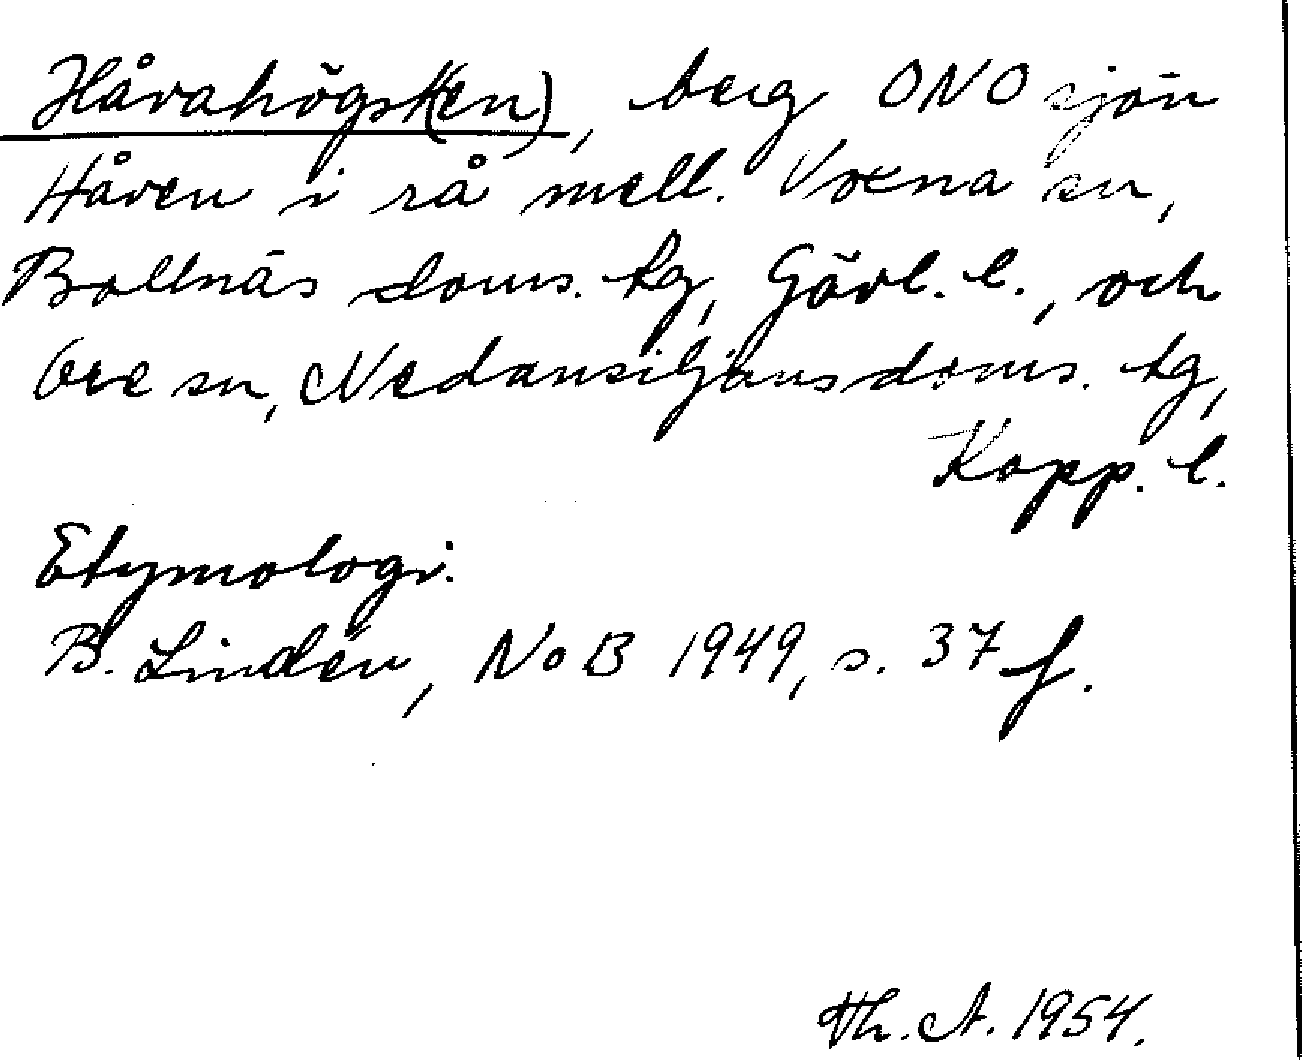 Håvahögst(en), berg ONO sjön
Håven i rå mell. Voxna sn,
Bollnäs doms. tg, Gävl. l., och
Ore sn, Nedansiljans doms. tg,
Kopp. l.
Etymologi:
B. Lindén, NoB 1949, s. 37 f.
Th. A. 1954.